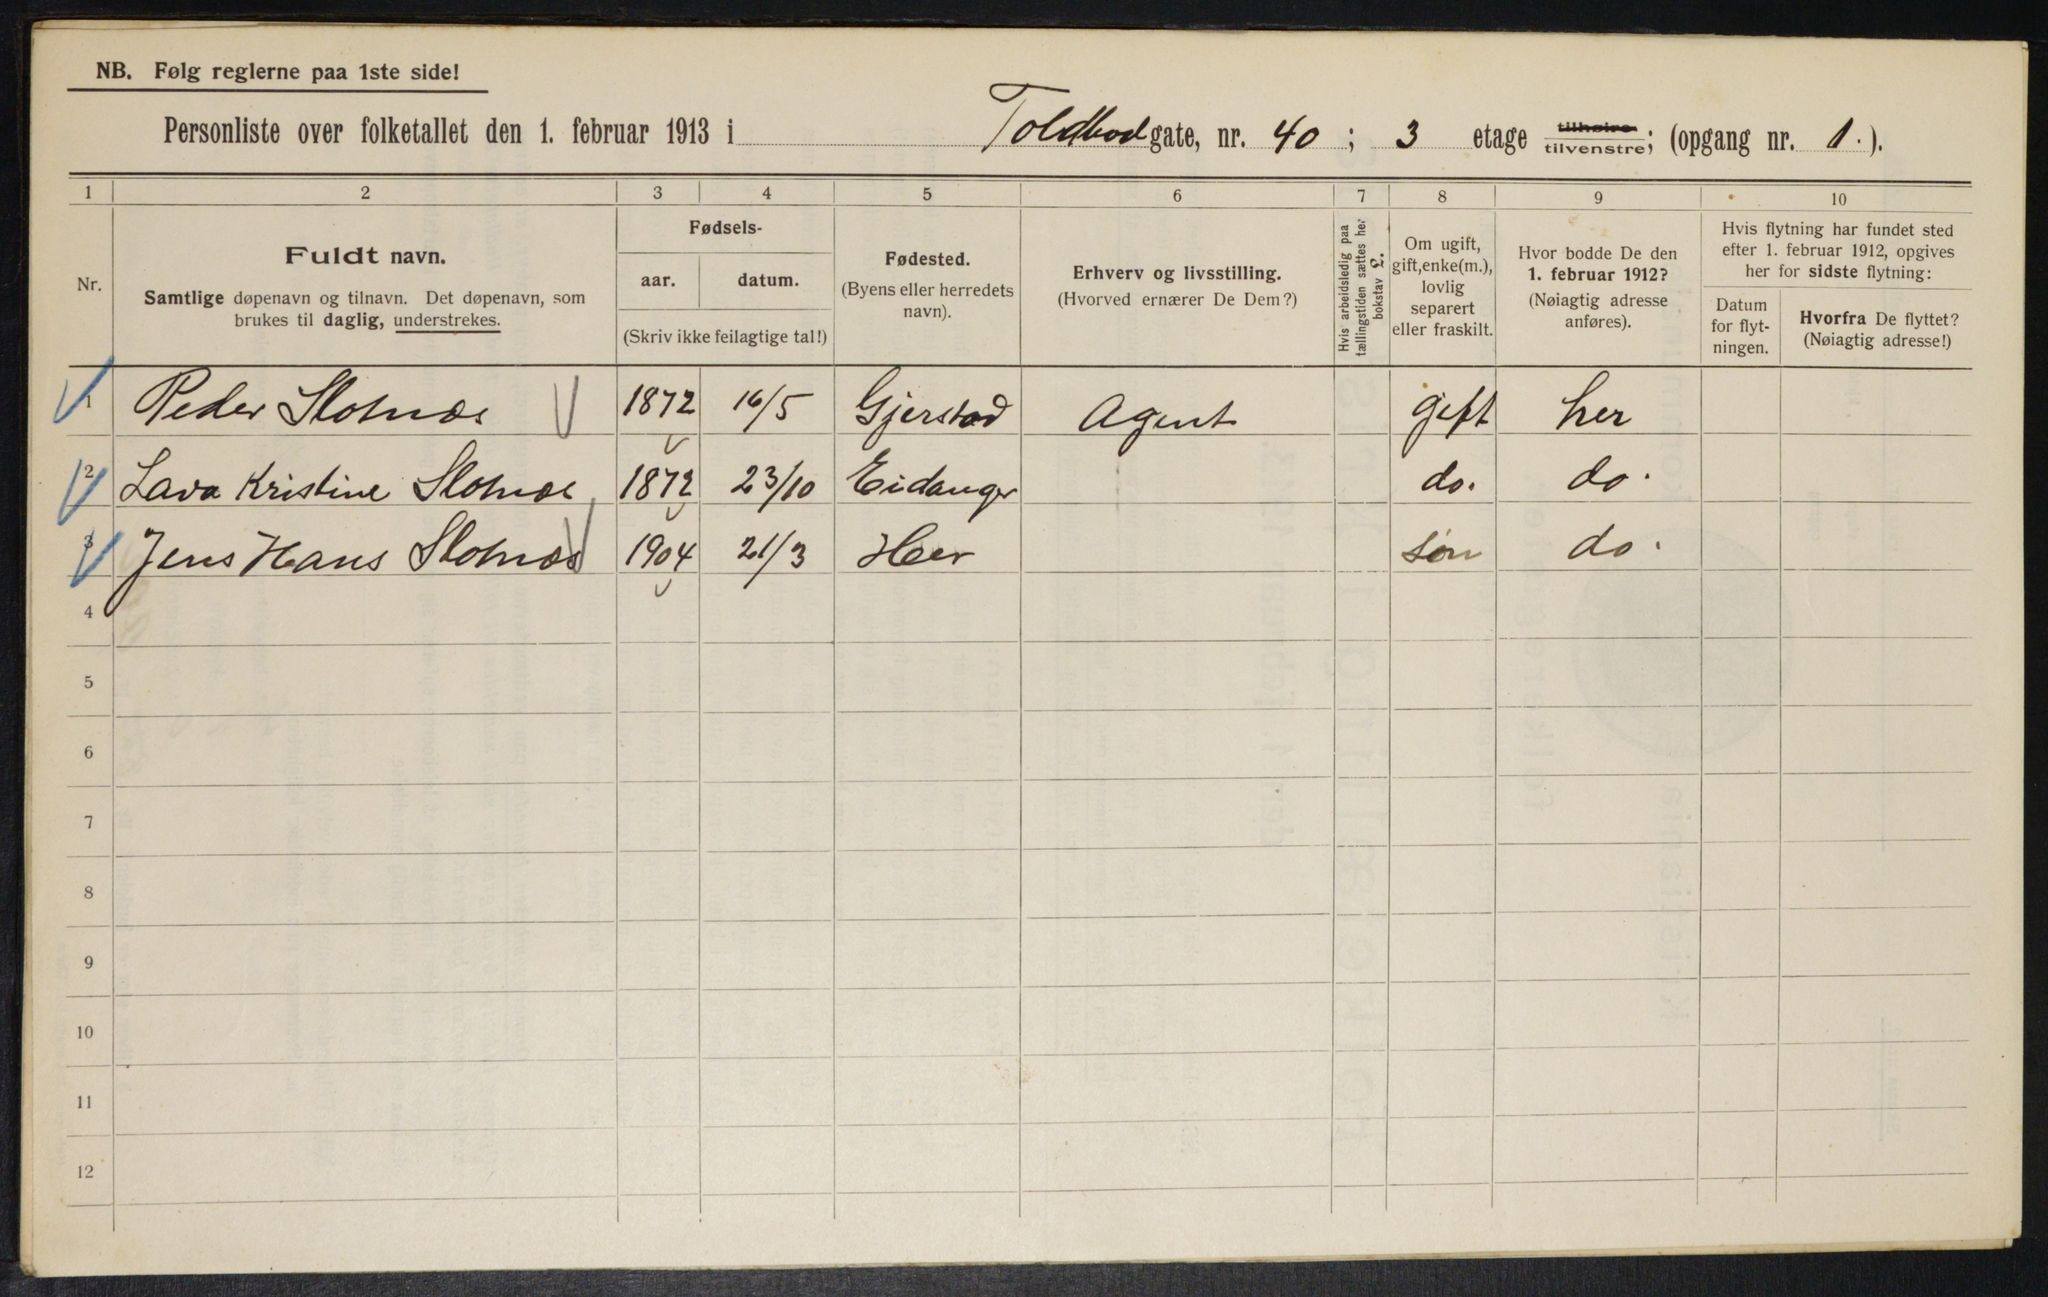 NB. Følg reglerne paa 1ste side!
Personliste over folketallet den 1. februar 1913 i Toldbodgate, nr. 40; 3 etage tilhøire tilvenstre; (opgang nr. 1.).
1 2 3 4 5 6 7 8 9 10
Nr.
Fuldt navn.
Samtlige døpenavn og tilnavn. Det døpenavn, som
brukes til daglig, understrekes.
Fødsels-
aar. datum.
(Skriv ikke feilagtige tal!)
Fødested.
(Byens eller herredets
navn).
Erhverv og livsstilling.
(Hvorved ernærer De Dem?)
Hvis arbeidsledig paa
tællingstiden sættes her
bokstav l.
Om ugift,
gift, enke(m.),
lovlig
separert
eller fraskilt.
Hvor bodde De den
1. februar 1912?
(Nøiagtig adresse
anføres).
Hvis flytning har fundet sted
efter 1. februar 1912, opgives
her for sidste flytning:
Datum
for flyt-
ningen.
Hvorfra De flyttet?
(Nøiagtig adresse!)
1 Peder Slotnæs 1872 16/5 Gjerstad Agent gift her
2 Lava Kristine Slotnæs 1872 23/10 Eidanger do. do.
3 Jens Hans Slotnæs 1904 21/3 Her søn do.
4
5
6
7
8
9
10
11
12